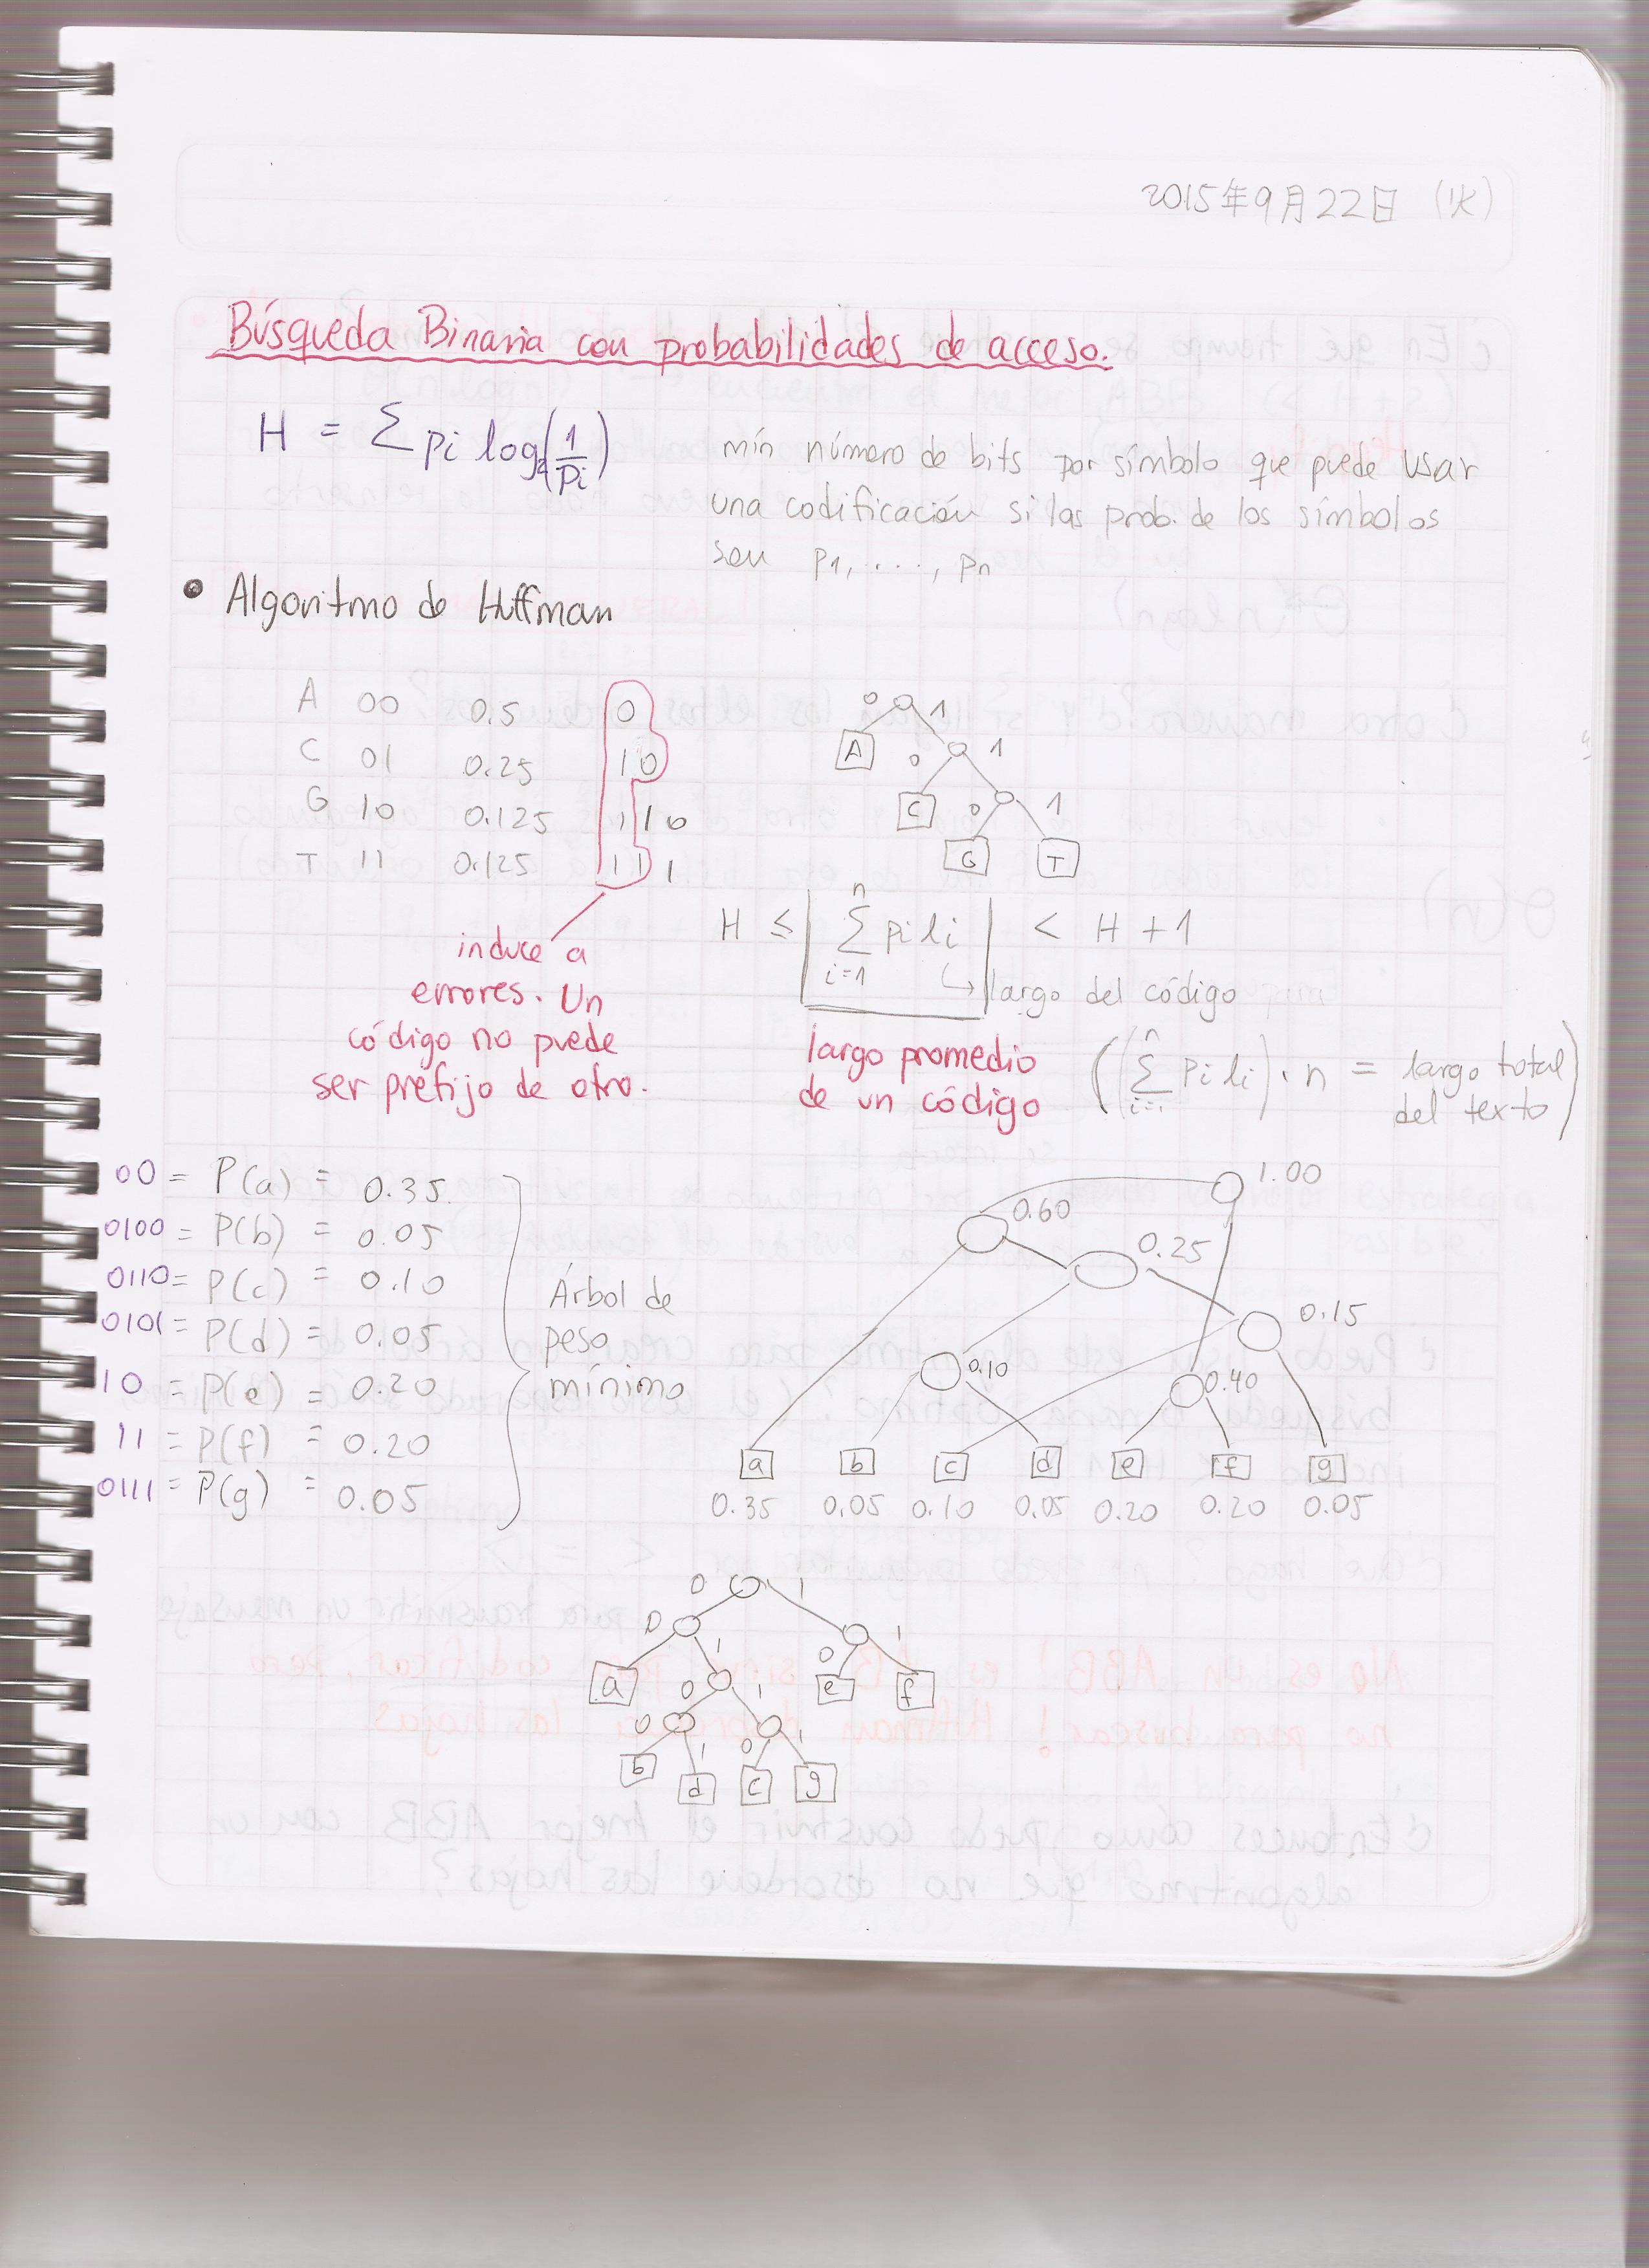 2015年9月22日 (火)
Búsqueda Binaria con probabilidades de acceso.
H = Σ pi log₂(1/pi)
mín número de bits por símbolo que puede usar
una codificación si las prob. de los símbolos
son p1, ..., pn
• Algoritmo de Huffman
A 00 0.5 0
C 01 0.25 10
G 10 0.125 110
T 11 0.125 111
0 1
A 0 1
C 0 1
G T
induce a
errores. Un
código no puede
ser prefijo de otro.
n
H ≤ Σ pi li < H + 1
i=1
↳ largo del código
largo promedio
de un código
n
((Σ pi li) · n = largo total
i=1
del texto)
00 = P(a) = 0.35
0100 = P(b) = 0.05
0110 = P(c) = 0.10
0101 = P(d) = 0.05
10 = P(e) = 0.20
11 = P(f) = 0.20
0111 = P(g) = 0.05
Árbol de
peso
mínimo
1.00
0.60
0.25
0.15
0.10
0.40
a b c d e f g
0.35 0.05 0.10 0.05 0.20 0.20 0.05
0 1
0 1 0 1
a 0 1 e f
0 1 0 1
b d c g